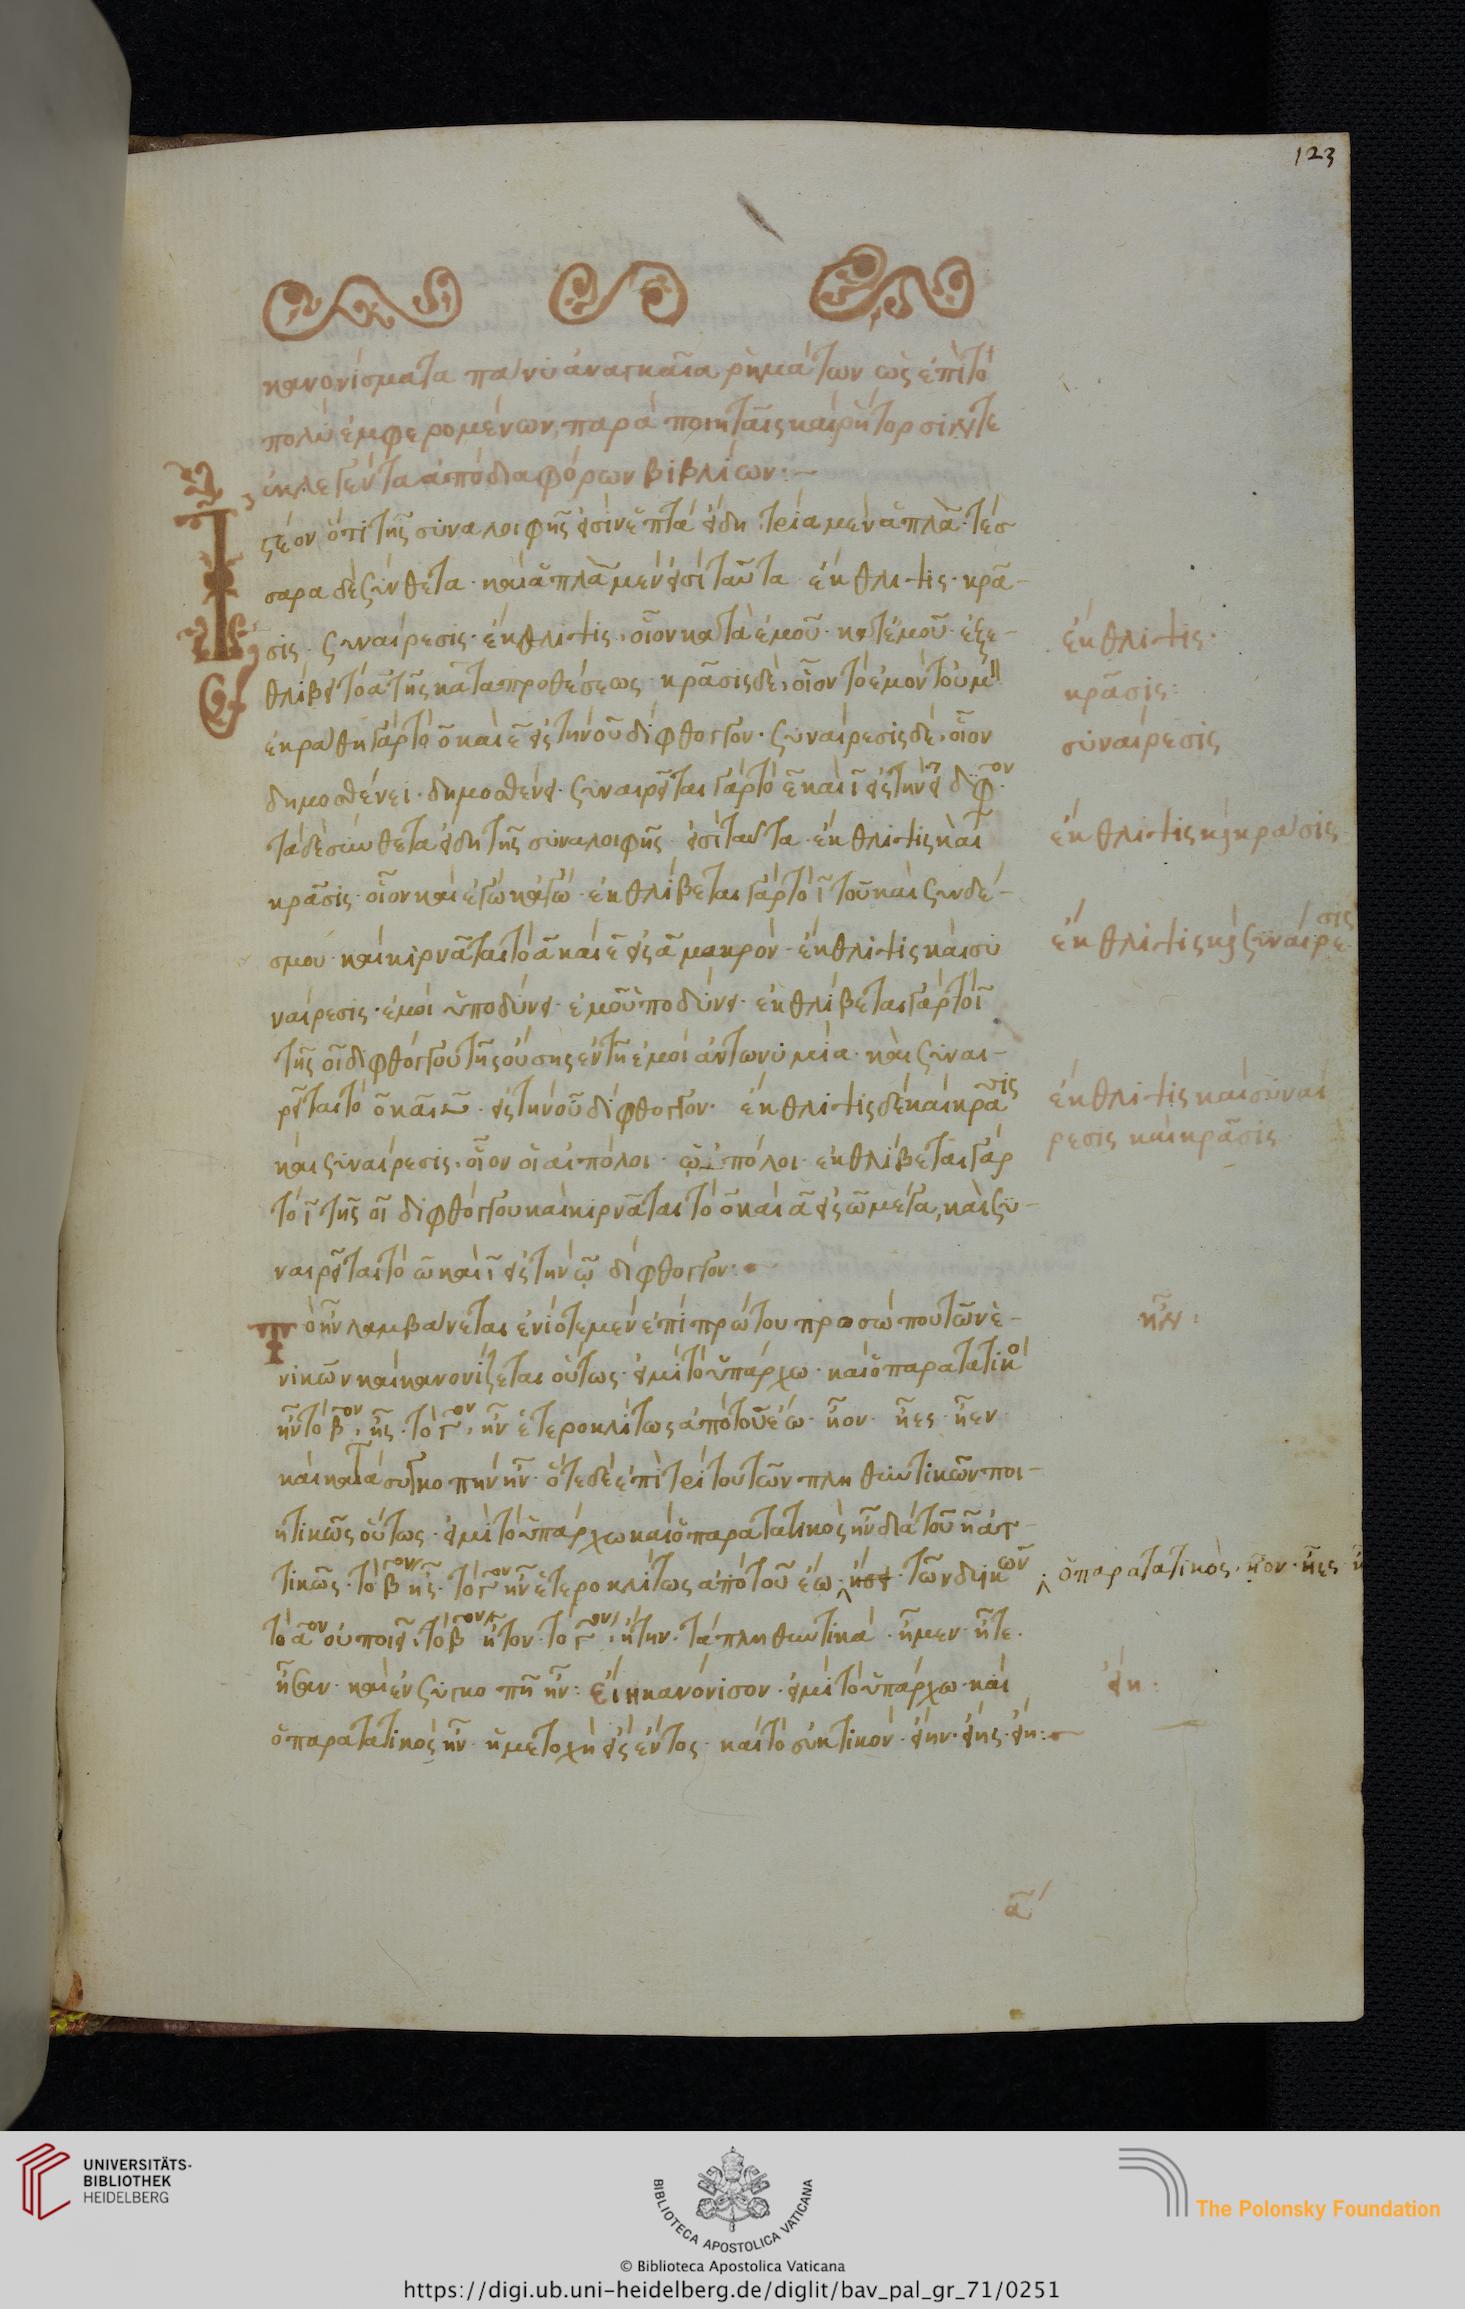 123
κανονίσματα πάνυ ἀναγκαῖα ῥημάτων ὡς ἐπὶ τὸ
πολὺ ἐμφερομένων, παρὰ ποιηταῖς καὶ ῥήτορσιν τε
ἐκλεγέντα ἀπὸ διαφόρων βιβλίων:—
Ἰστέον ὅτι τῆς συναλοιφῆς εἰσὶν ἑπτὰ εἴδη τρία μὲν ἁπλᾶ· τέσ
σαρα δὲ σύνθετα· καὶ ἁπλᾶ μὲν εἰσὶ ταῦτα ἔκθλιψις· κρᾶ-
σις· συναίρεσις· ἔκθλιψις, οἷον κατὰ ἐμοῦ· κατ' ἐμοῦ· ἐξε-
θλίβει τὸ α τῆς κατὰ προθέσεως· κρᾶσις δὲ, οἷον τὸ ἐμὸν τοὐμὸν
ἐκράθη γὰρ τὸ ο καὶ ε εἰς τὴν ου δίφθογγον· συναίρεσις δὲ, οἷον
δημοσθένεϊ· δημοσθένει· συναιρεῖται γὰρ τὸ ε καὶ ι εἰς τὴν ει διφον·
τὰ δὲ σύνθετα εἴδη τῆς συναλοιφῆς εἰσὶ ταῦτα· ἔκθλιψις καὶ
κρᾶσις· οἷον καὶ ἐγὼ κἀγώ· ἐκθλίβεται γὰρ τὸ ι τοῦ καὶ συνδέ-
σμου· καὶ κιρνᾶται τὸ α καὶ ε εἰς α μακρὸν· ἔκθλιψις καὶ συ
ναίρεσις· ἐμοὶ ὑποδύνει· ἐμοὺποδύνει· ἐκθλίβεται γὰρ τὸ ι
τῆς οι διφθόγγου τῆς οὔσης ἐν τῇ ἐμοὶ ἀντωνυμία· καὶ συναι-
ρεῖται τὸ ο καὶ υ εἰς τὴν ου δίφθογγον· ἔκθλιψις δὲ καὶ κρᾶσις
καὶ συναίρεσις, οἷον οἱ αἰπόλοι· ᾠπόλοι· ἐκθλίβεται γὰρ
τὸ ι τῆς οι διφθόγγου καὶ κιρνᾶται τὸ ο καὶ α εἰς ω μέγα, καὶ συ-
ναιρεῖται τὸ ω καὶ ι εἰς τὴν ῳ δίφθογγον:
Τὸ ἦν λαμβάνεται ἐνίοτε μὲν ἐπὶ πρώτου προσώπου τῶν ἑ-
νικῶν καὶ κανονίζεται οὕτως· εἰμὶ τὸ ὑπάρχω· καὶ ὁ παρατατικὸ
ἦν τὸ βον, ἦς· τὸ γον, ἦν ἑτεροκλίτως ἀπὸ τοῦ ἔω· ἦον· ἦες· ἦεν
καὶ κατὰ συγκοπὴν ἦν· ὁτὲ δὲ ἐπὶ τρίτου τῶν πληθυντικῶν ποι-
ητικῶς οὕτως· εἰμὶ τὸ ὑπάρχω καὶ ὁ παρατατικὸς ἦν διὰ τοῦ η ἀτ-
τικῶς· τὸ βον ἦς· τὸ γον ἦν ἑτεροκλίτως ἀπὸ τοῦ ἔω· τῶν δυικῶν
τὸ αον οὐ ποιεῖ, τὸ βον ἦτον· τὸ γον, ἤτην· τὰ πληθυντικὰ· ἦμεν· ἦτε·
ἦσαν· καὶ ἐν συγκοπῇ ἦν: Εἴη κανόνισον· εἰμὶ τὸ ὑπάρχω καὶ
ὁ παρατατικὸς ἦν· ἡ μετοχὴ εἲς ἔντος· καὶ τὸ εὐκτικὸν· εἴην· εἴης· εἴη:
ἔκθλιψις·
κρᾶσις:
συναίρεσις
ἔκθλιψις κ κρᾶσις
ἔκθλιψις κ συναίρεσις
ἔκθλιψις καὶ συναί
ρεσις καὶ κρᾶσις
ἦν:
ὁ παρατατικὸς· ἦον· ἦες
εἴη:
α
UNIVERSITÄTS-
BIBLIOTHEK
HEIDELBERG
BIBLIOTECA APOSTOLICA VATICANA
The Polonsky Foundation
© Biblioteca Apostolica Vaticana
https://digi.ub.uni-heidelberg.de/diglit/bav_pal_gr_71/0251